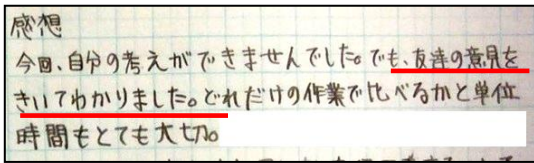 感想
今回、自分の考えができませんでした。でも、友達の意見を
きいてわかりました。どれだけの作業で比べるかと単位
時間もとても大切。